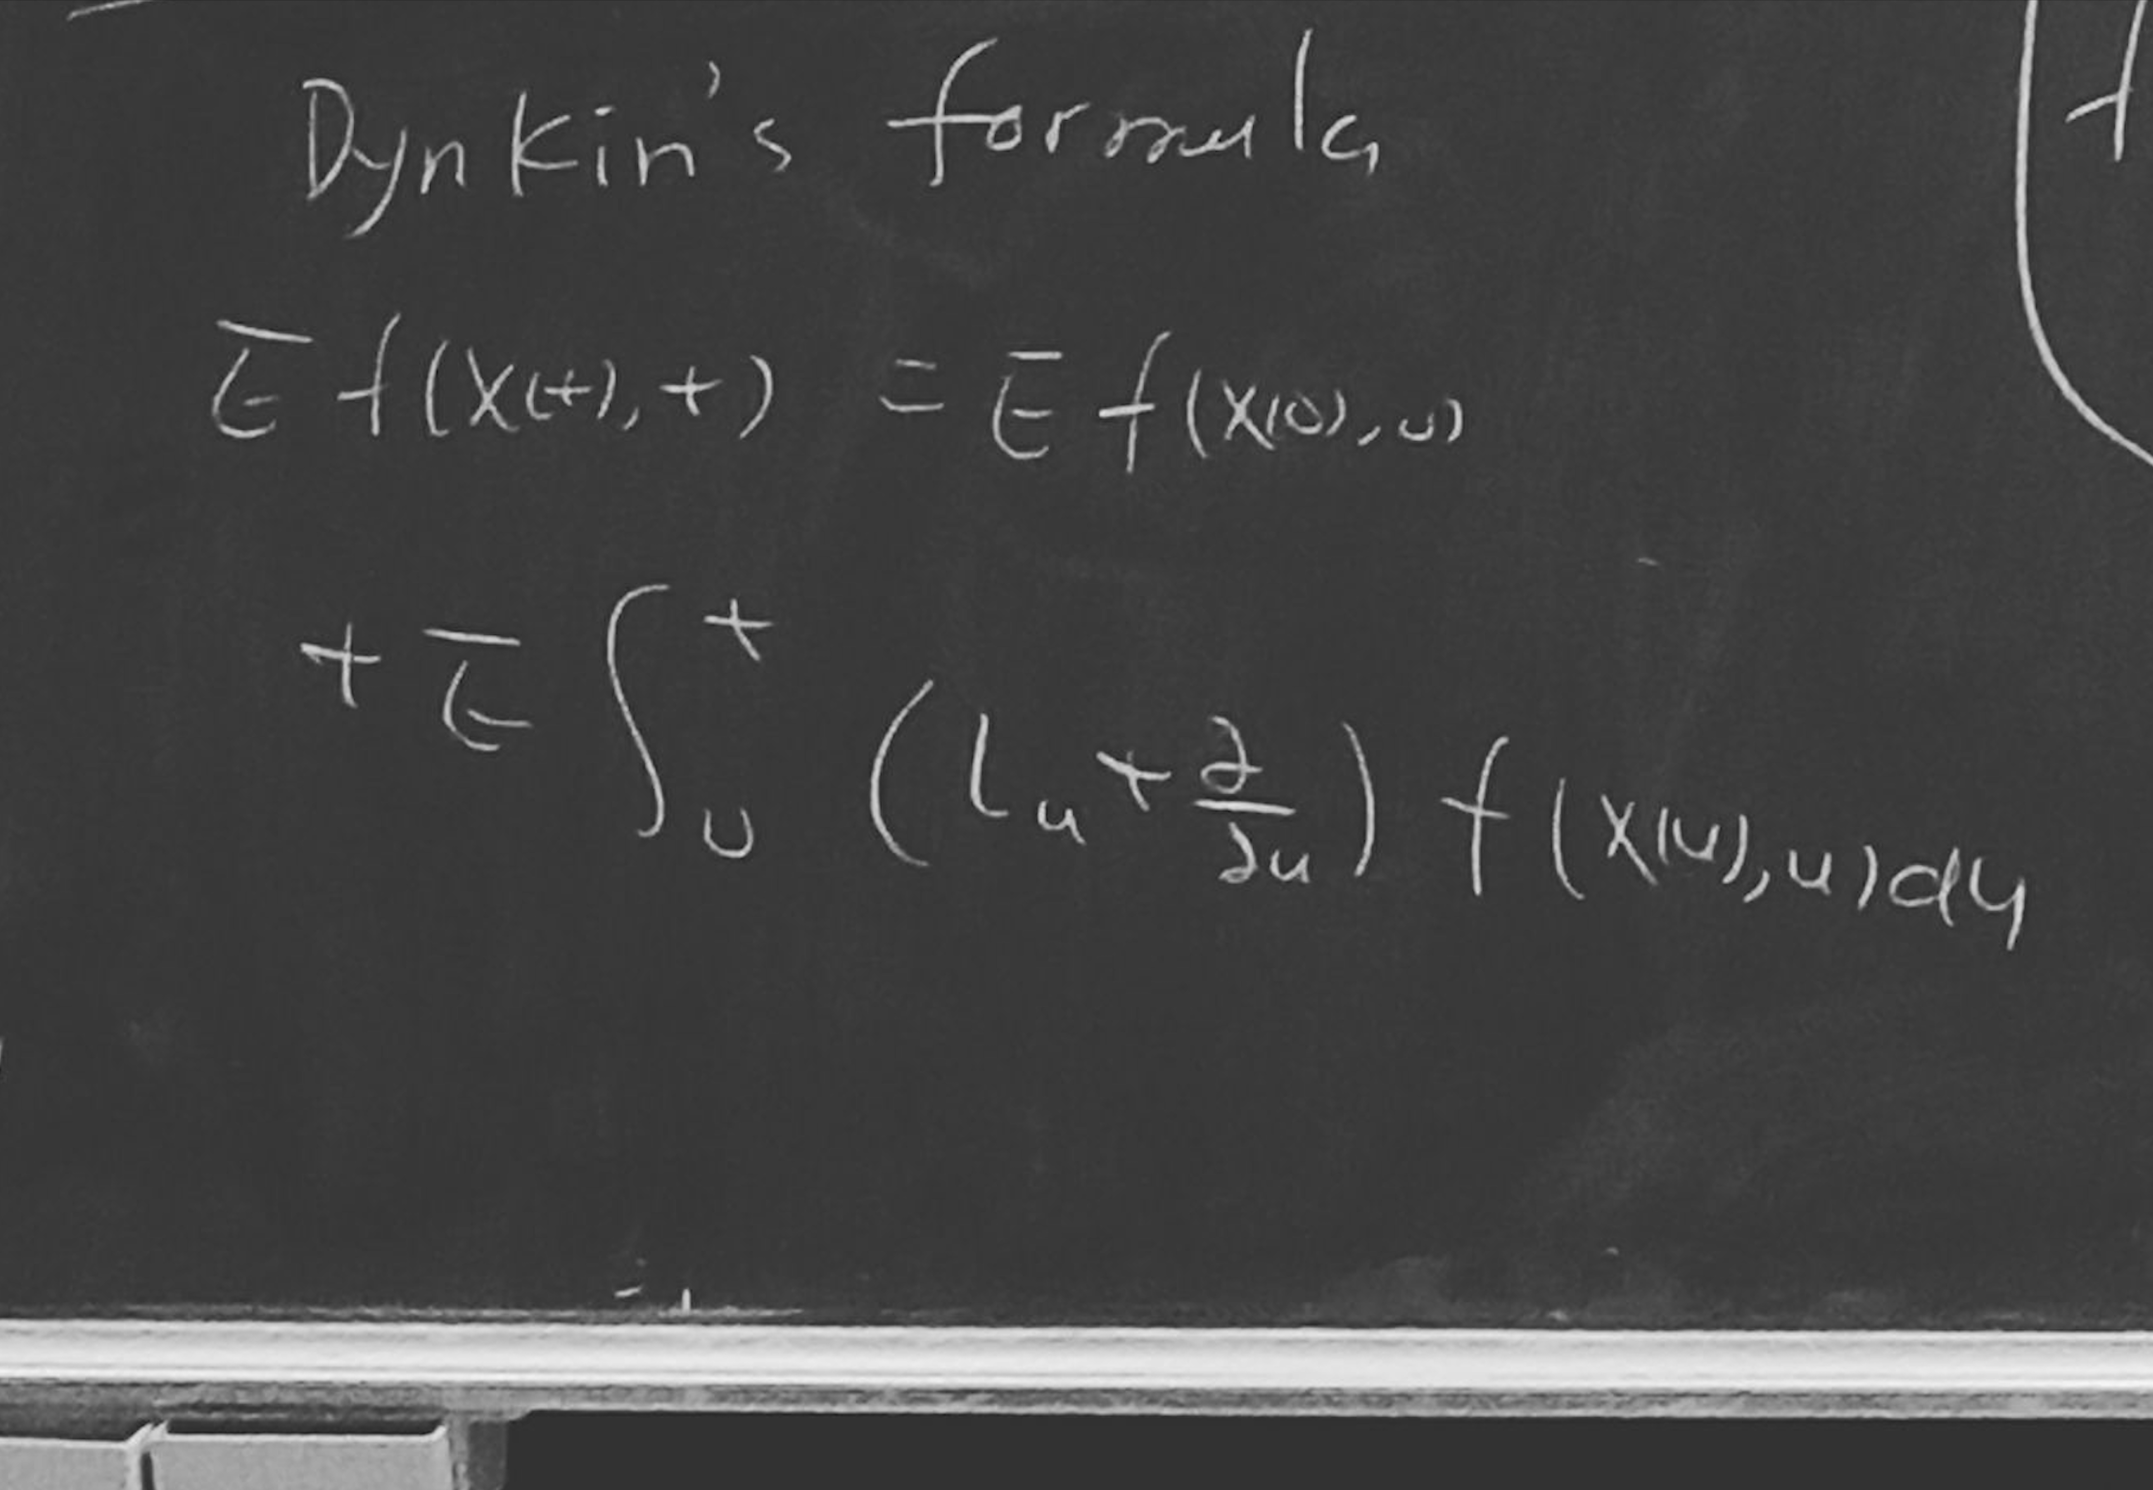 Dynkin's formula
E f(X(t), t) = E f(X(0), 0)
+ E ∫₀ᵗ (L_u + ∂/∂u) f(X(u), u) du